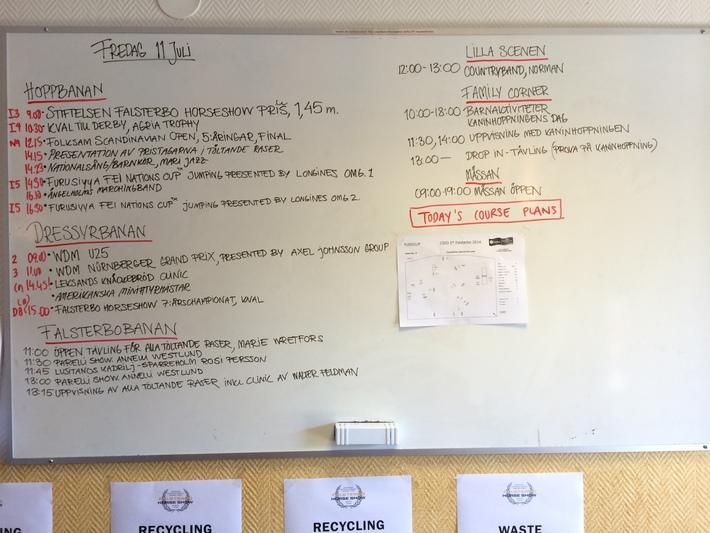 FREDAG 11 JULI
HOPPBANAN
I3 9.00 • STIFTELSEN FALSTERBO HORSESHOW PRIS, 1,45 m.
I4 10.30 • KVAL TILL DERBY, AGRIA TROPHY
N9 12.15 • FOLKSAM SCANDINAVIAN OPEN, 5-ÅRINGAR, FINAL
14.15 • PRESENTATION AV PRISTAGARNA I TÖLTANDE RASER
14.25 • NATIONALSÅNG/BARNKÖR, MARI JAZZ
I5 14.30 • FURUSIYYA FEI NATIONS CUP JUMPING PRESENTED BY LONGINES OMG. 1
16.10 • ÄNGELHOLMS MARCHINGBAND
I5 16.50 • FURUSIYYA FEI NATIONS CUP™ JUMPING PRESENTED BY LONGINES OMG 2
DRESSYRBANAN
2 09.00 • WDM U25
3 11.40 • WDM NÜRNBERGER GRAND PRIX, PRESENTED BY AXEL JOHNSSON GROUP
14.45 • LEKSANDS KNÄCKEBRÖD CLINIC
• AMERIKANSKA MINIATYRHÄSTAR
15.00 • FALSTERBO HORSESHOW 7-ÅRSCHAMPIONAT, KVAL
FALSTERBOBANAN
11:00 ÖPPEN TÄVLING FÖR ALLA TÖLTANDE RASER, MARIE WRETFORS
11:30 PARELLI SHOW. ANNELLI WESTLUND
11:45 LUSITANOS KADRILJ - SPARREHOLM ROSI PERSSON
13:00 PARELLI SHOW. ANNELLI WESTLUND
13:15 UPPVISNING AV ALLA TÖLTANDE RASER INKL CLINIC AV WALTER FELDMAN
LILLA SCENEN
12:00-13:00 COUNTRYBAND, NORMAN
FAMILY CORNER
10:00-18:00 BARNAKTIVITETER
KANINHOPPNINGENS DAG
11:30, 14:00 UPPVISNING MED KANINHOPPNINGEN
13:00— DROP IN-TÄVLING (PROVA PÅ KANINHOPPNING)
MÄSSAN
09:00-19:00 MÄSSAN ÖPPEN
TODAY'S COURSE PLANS
RECYCLING
HORSE SHOW
RECYCLING
HORSE SHOW
WASTE
HORSE SHOW